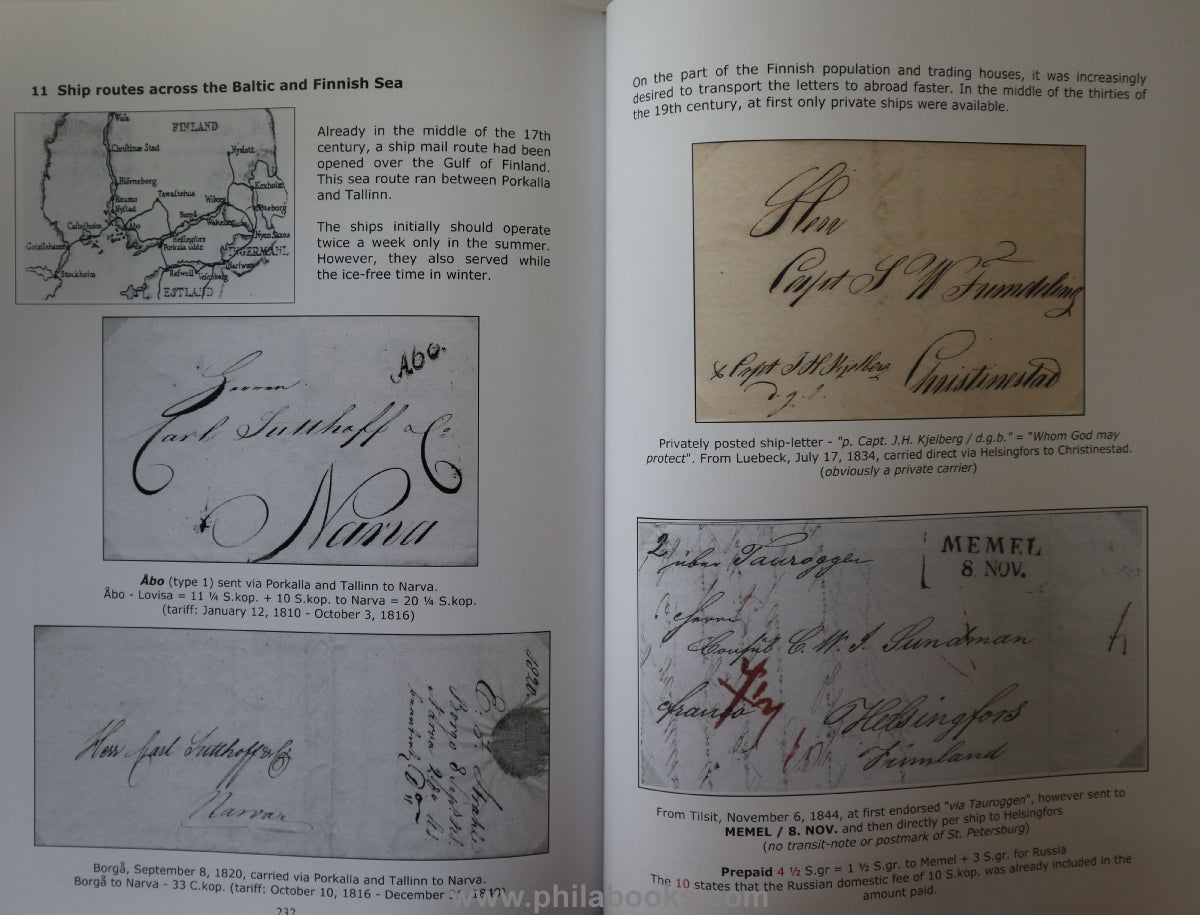 11 Ship routes across the Baltic and Finnish Sea
Wasa
FINLAND
Christinæ Stad
Nyslott
Biörneborg
Kexholm
Raumo
Tawastehus
Nystad
Wiborg
Borgå
Castelholm
Åbo
Nyen Skans
Helsingfors
Porkala udde
Grislehamn
INGERMANL.
Narfwa
Stockholm
Refwell
ESTLAND
Already in the middle of the 17th
century, a ship mail route had been
opened over the Gulf of Finland.
This sea route ran between Porkalla
and Tallinn.
The ships initially should operate
twice a week only in the summer.
However, they also served while
the ice-free time in winter.
Åbo.
Herren
Carl Sutthoff & Co
Narva
Åbo (type 1) sent via Porkalla and Tallinn to Narva.
Åbo - Lovisa = 11 ¼ S.kop. + 10 S.kop. to Narva = 20 ¼ S.kop.
(tariff: January 12, 1810 - October 3, 1816)
Herr Carl Sutthoff & Co
Narva
1820.
Borgo 8 Sept
Narva
Borgå, September 8, 1820, carried via Porkalla and Tallinn to Narva.
Borgå to Narva - 33 C.kop. (tariff: October 10, 1816 - December 31, 1819)
232
On the part of the Finnish population and trading houses, it was increasingly
desired to transport the letters to abroad faster. In the middle of the thirties of
the 19th century, at first only private ships were available.
Herr
Capt S W
p Capt J H Kjelberg
d. g. b.
Christinestad
Privately posted ship-letter - "p. Capt. J.H. Kjelberg / d.g.b." = "Whom God may
protect". From Luebeck, July 17, 1834, carried direct via Helsingfors to Christinestad.
(obviously a private carrier)
über Tauroggen
MEMEL
8. NOV.
Herrn
Consul C. W. I. Sundman
franco
Helsingfors
Finnland
From Tilsit, November 6, 1844, at first endorsed "via Tauroggen", however sent to
MEMEL / 8. NOV. and then directly per ship to Helsingfors
(no transit-note or postmark of St. Petersburg)
Prepaid 4 ½ S.gr = 1 ½ S.gr. to Memel + 3 S.gr. for Russia
The 10 states that the Russian domestic fee of 10 S.kop. was already included in the
amount paid.
www.philabooks.com